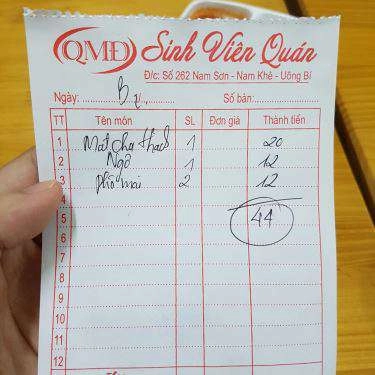 QMĐ Sinh Viên Quán
Đ/c: Số 262 Nam Sơn - Nam Khê - Uông Bí
Ngày: Số bàn:
TT Tên món SL Đơn giá Thành tiền
1 Matcha thạch 1 20
2 Ngô 1 12
3 phô mai 2 12
4
5 44
6
7
8
9
10
11
12